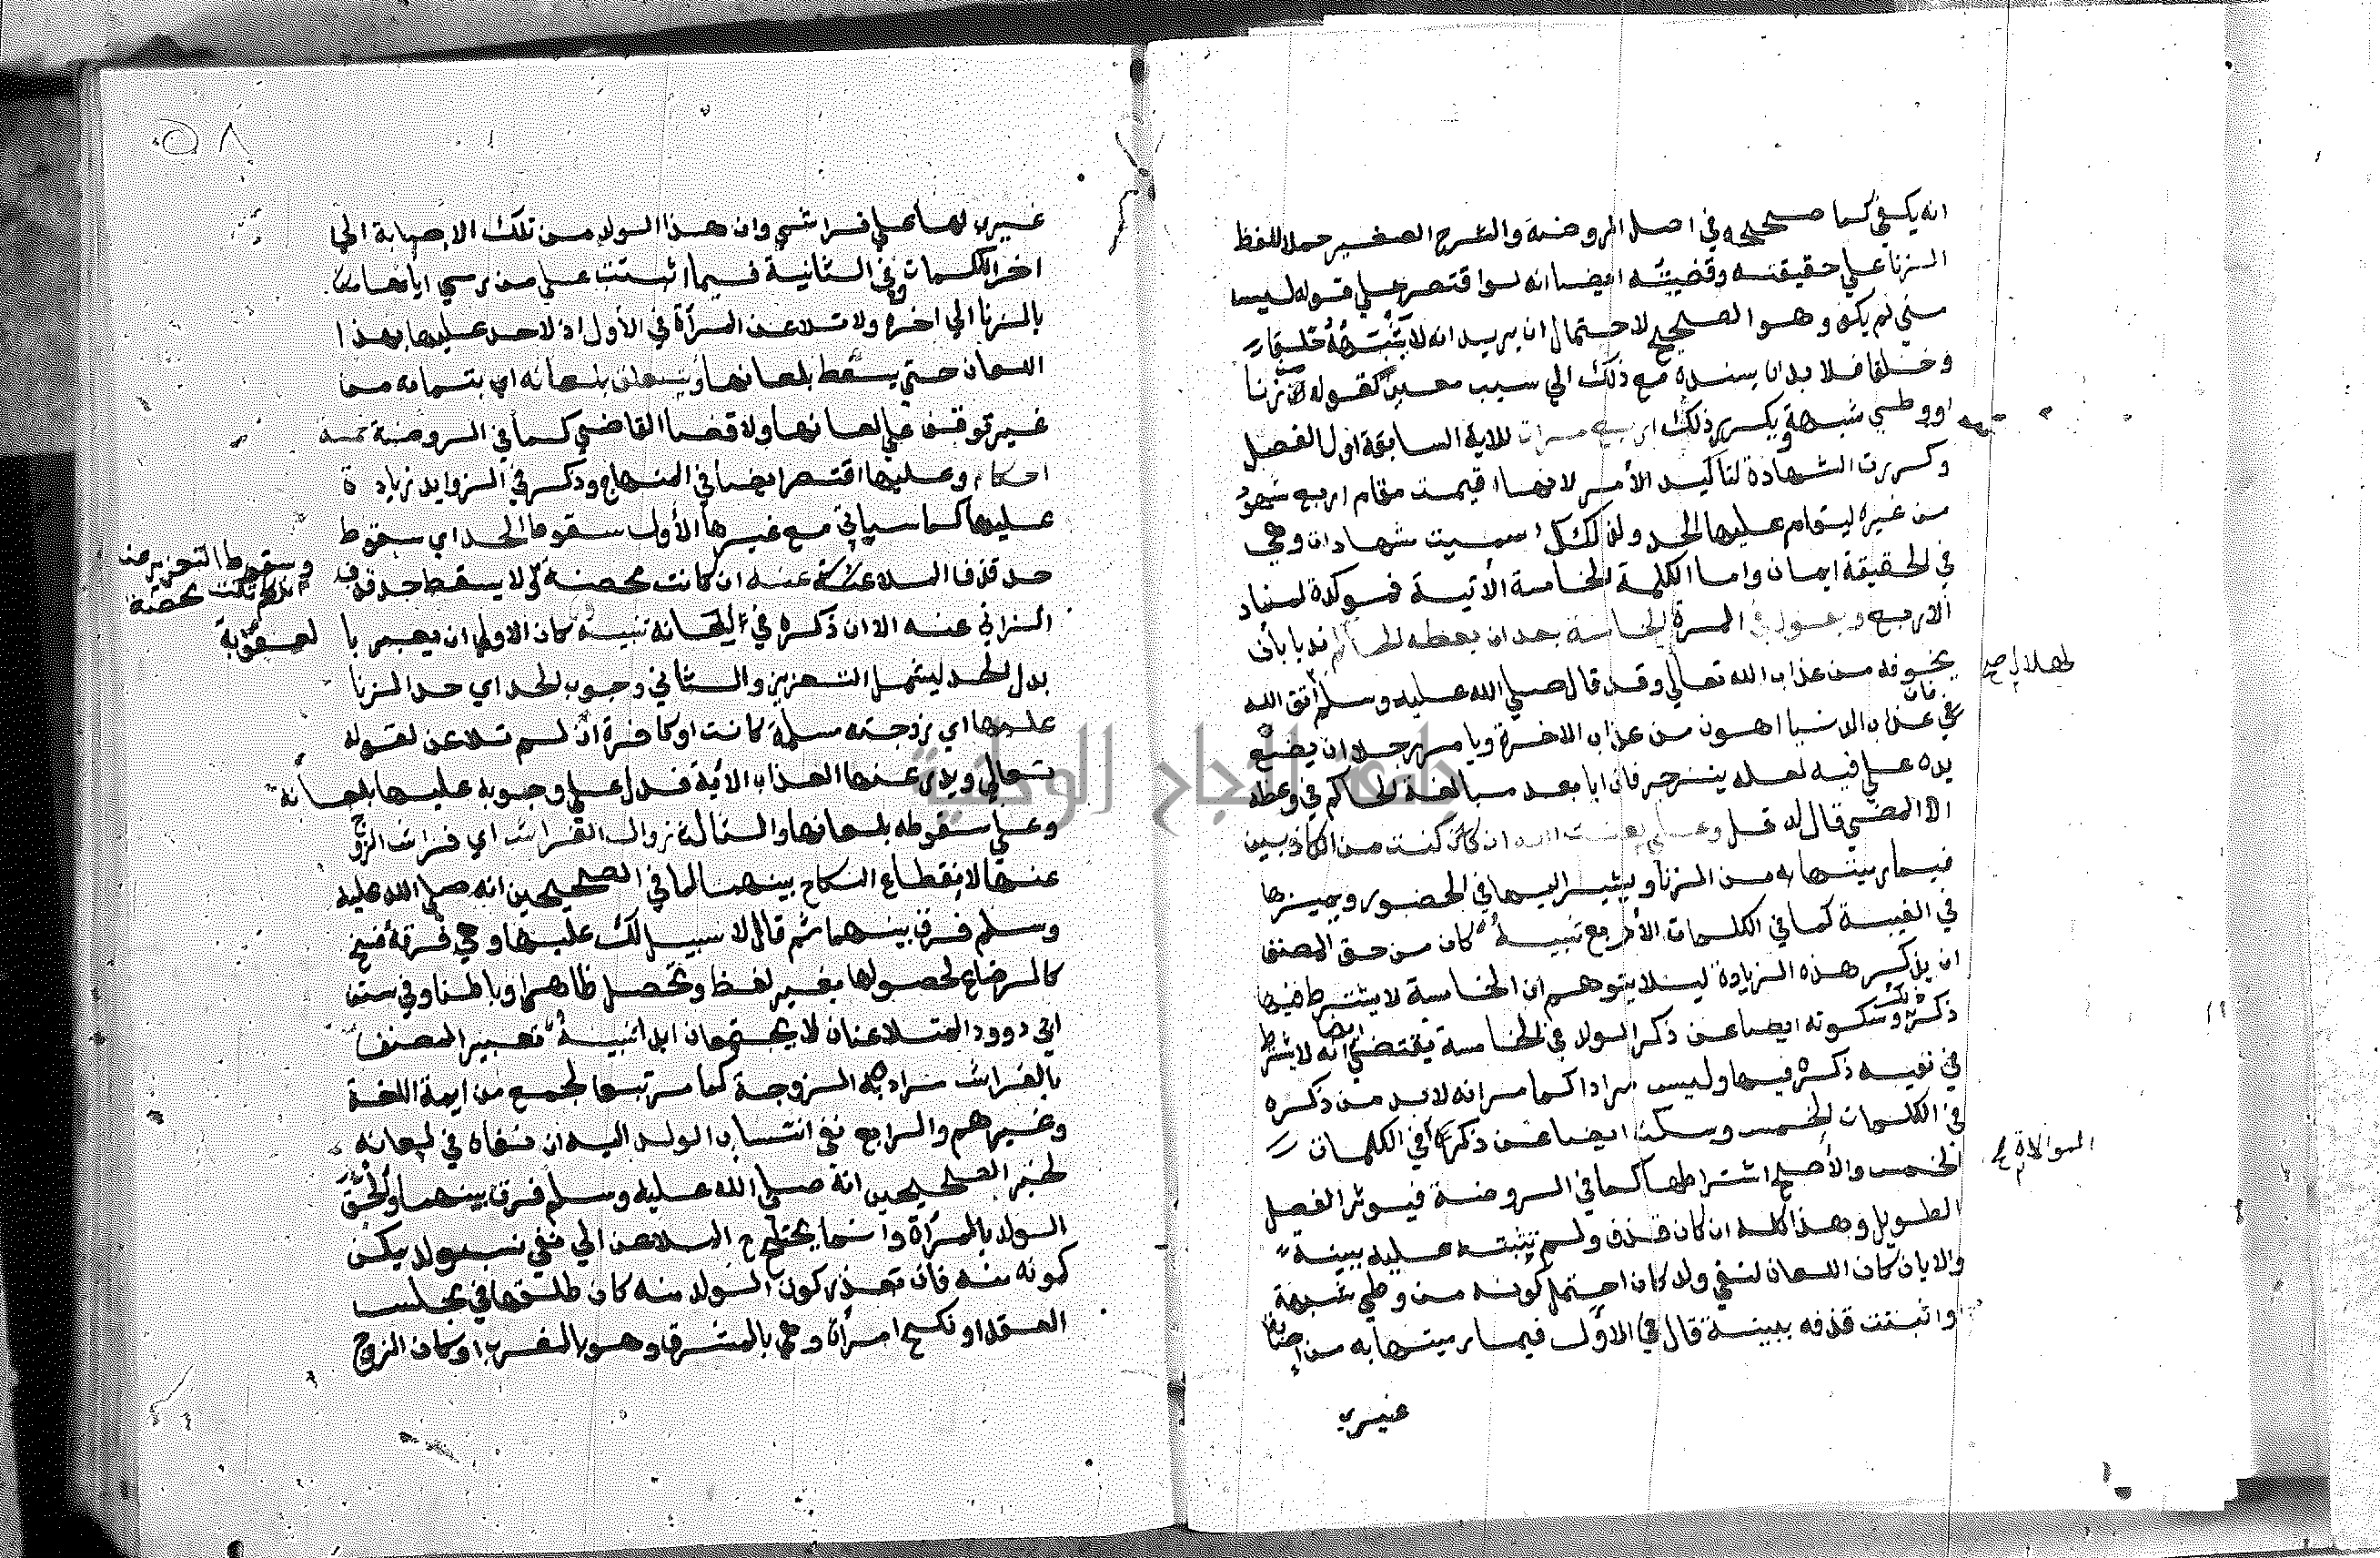 انه يكفي كما صححه في اصل الروضة والشرح الصغير حملا للفظ
الزنا علي حقيقته وقضيته ايضا انه لو اقتصر علي قوله ليس
مني لم يكف وهو الصحيح لاحتمال ان يريد انه لا يشبهه خلقا
وخلقا فلا بد ان يسنده مع ذلك الي سبب معين كقوله من زنا
او وطي شبهة ويكرر ذلك اربع مرات للاية السابقة اول الفصل
وكررت الشهادة لتاكيد الأمر لانها اقيمت مقام اربع شهود
من غيره ليقام عليها الحد ولذلك سميت شهادات وهي
في الحقيقة ايمان واما الكلمة الخامسة الأتية فموكدة لمفاد
الاربع ويقول في المرة الخامسة بعد ان يعظه الحاكم ندبا بأن
يخوفه من عذاب الله تعالي وقد قال صلي الله عليه وسلم لهلال اتق الله
فان عذاب الدنيا اهون من عذاب الاخرة ويامر رجلا ان يضع
يده علي فيه لعله ينزجر فان ابا بعد مبالغة الحاكم في وعظه
الا المضي قال له قل وعلي لعنت الله ان كنت من الكاذبين
فيما رميتها به من الزنا ويشير اليها في الحضور ويميزها
في الغيبة كما في الكلمات الأربع تنبيه كان من حق المصنف
ان يذكر هذه الزيادة ليلا يتوهم ان الخامسة لا يشترط فيها
ذكره وسكوته ايضا عن ذكر الولد في الخامسة يقتضي انه لا يشترط
في نفيه ذكره فيها وليس مرادا كما مر انه لا بد من ذكره
في الكلمات الخمس وسكت ايضا عن ذكر الموالاة في الكلمات
الخمس والأصح اشتراطها كما في الروضة فيوثر الفصل
الطويل وهذا كله ان كان قذف ولم تثبته عليه ببينة
والا بان كان اللعان لنفي ولد كان احتمل كونه من وطي شبهة
او اثبتت قذفه ببينة قال في الاول فيما رميتها به من اصابة
غيري
٥٨
غيري لها علي فراشي وان هذا الولد من تلك الاصابة الي
اخر الكلمات وفي الثانية فيما اثبتت علي من رميي اياها
بالزنا الي اخره ولا تلاعن المرأة في الأول اذ لا حد عليها بهذا
اللعان حتي يسقط بلعانها ويتعلق بلعانه اي بتمامه من
غير توقف علي لعانها ولا قضا القاضي كما في الروضة خمسة
احكام وعليها اقتصر ايضا في المنهاج وذكر في الزوايد زيادة
عليها كما سياتي مع غيرها الأول سقوط الحد اي سقوط
حد قذف الملاعنة عنه ان كانت محصنة وسقوط التعزير عنه ان لم تكن محصنة ولا يسقط حد قذف
الزاني عنه الا ان ذكره في لعانه تنبيه كان الاولي ان يعبر بالعقوبة
بدل الحد ليشمل التعزير والثاني وجوب الحد اي حد الزنا
عليها اي زوجته مسلمة كانت او كافرة ان لم تلاعن لقوله
تعالي ويدرا عنها العذاب الأية فدل علي وجوبه عليها بلعانه
وعلي سقوطه بلعانها والثالث زوال الفراش اي فراش الزوج
عنها لانقطاع النكاح بينهما لما في الصحيحين انه صلي الله عليه
وسلم فرق بينهما ثم قال لا سبيل لك عليها وهي فرقة فسخ
كالرضاع لحصولها بغير لفظ وتحصل ظاهرا وباطنا وفي سنن
ابي داوود المتلاعنان لا يجتمعان ابدا تنبيه تعبير المصنف
بالفراش مراده به الزوجة كما مر تبعا لجمع من ايمة اللغة
وغيرهم والرابع نفي انتساب الولد اليه ان نفاه في لعانه
لخبر الصحيحين انه صلي الله عليه وسلم فرق بينهما والحق
الولد بالمرأة وانما يحتاج الملاعن الي نفي نسب ولد يمكن
كونه منه فان تعذر كون الولد منه كان طلقها في مجلس
العقد او نكح امرأة وهي بالمشرق وهو بالمغرب او كان الزوج